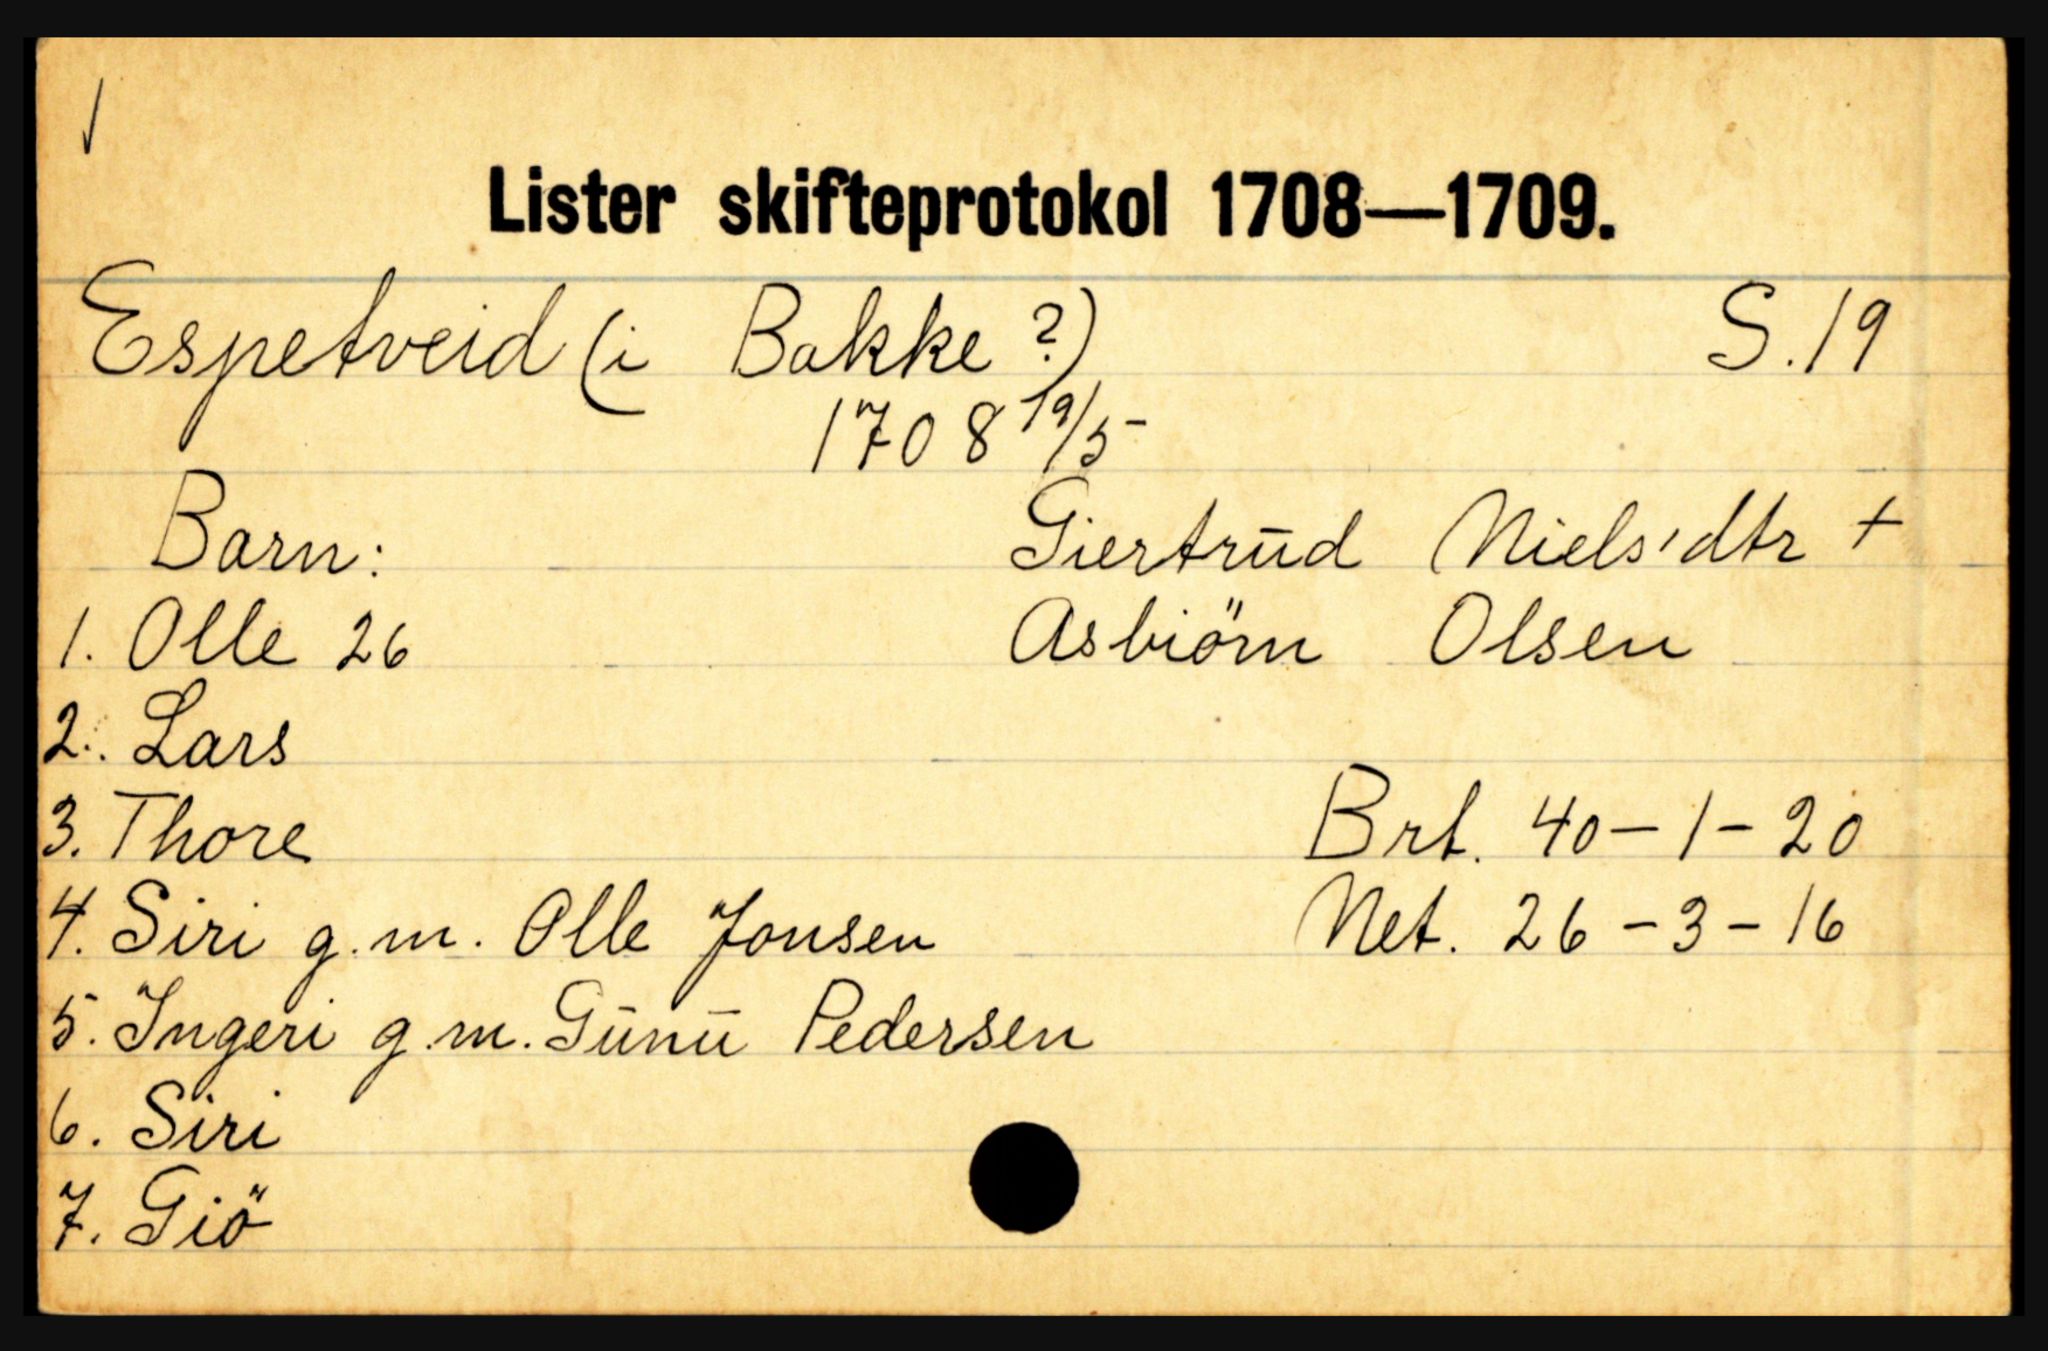 Lister skifteprotokol 1708—1709.
Espetveid (i Bakke ?) S. 19
1708 19/5-
Barn: Giertrūd Niels'dtr +
1. Olle 26 Asbiörn Olsen
2. Lars
3. Thore Brt. 40-1-20
4. Siri g.m. Olle Jonsen Net. 26-3-16
5. Ingeri g.m. Gūnū Pedersen
6. Siri
7. Giö